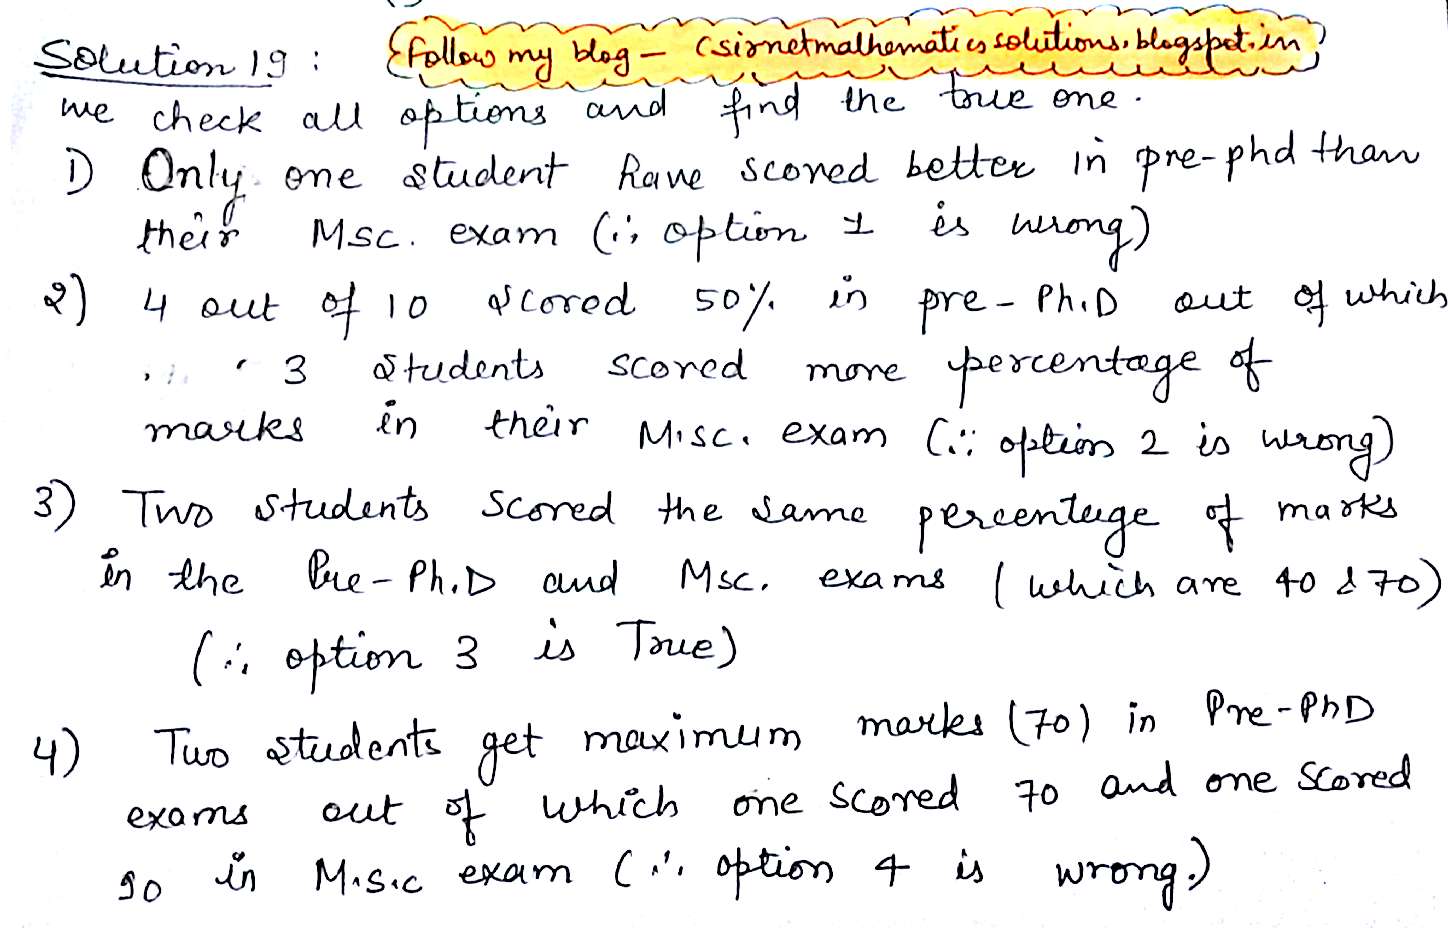 Solution 19 : {Follow my blog – csirnetmathematicssolutions.blogspot.in}
we check all options and find the true one.
1) Only one student have scored better in pre-phd than
their Msc. exam (∴ option 1 is wrong)
2) 4 out of 10 scored 50% in pre-Ph.D out of which
3 students scored more percentage of
marks in their M.sc. exam (∴ option 2 is wrong)
3) Two students scored the same percentage of marks
in the Pre-Ph.D and Msc. exams (which are 40 & 70)
(∴ option 3 is True)
4) Two students get maximum marks (70) in Pre-PhD
exams out of which one scored 70 and one scored
90 in M.s.c exam (∴ option 4 is wrong.)